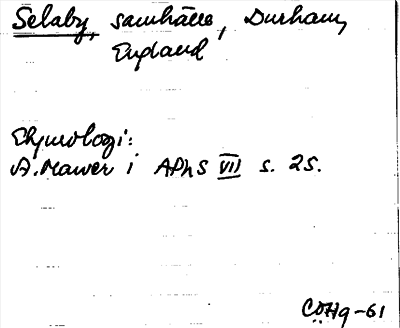 Selaby, samhälle, Durham,
England
Etymologi:
A. Mawer i APhS VII s. 25.
CÖHg-61